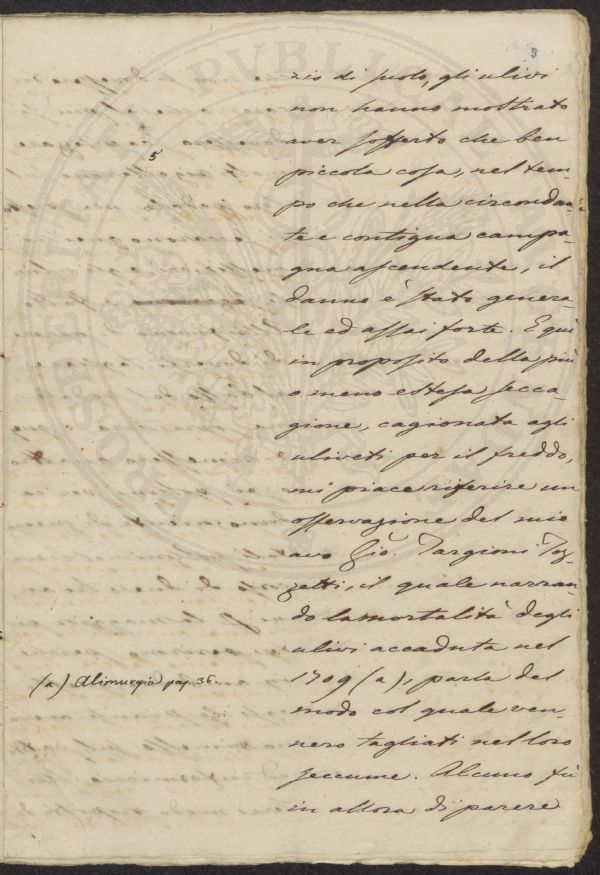 3
5
zio di suolo, gli ulivi
non hanno mostrato
aver sofferto che ben
piccola cosa, nel tem-
po che nella circondan-
te e contigua campa-
gna ascendente, il
danno è stato genera-
le ed assai forte. E quì
in proposito della più
o meno estesa secca-
gione, cagionata agli
uliveti per il freddo,
mi piace riferire un
osservazione del mio
avo Gio. Targioni Toz-
zetti, il quale narran-
do la mortalità degli
ulivi accaduta nel
1709 (a), parla del
(a) Alimurgia pag. 36.
modo col quale ven-
nero tagliati nel loro
seccume. Alcuno fù
in allora di parere
PVBLICAE
PROSPERITATI